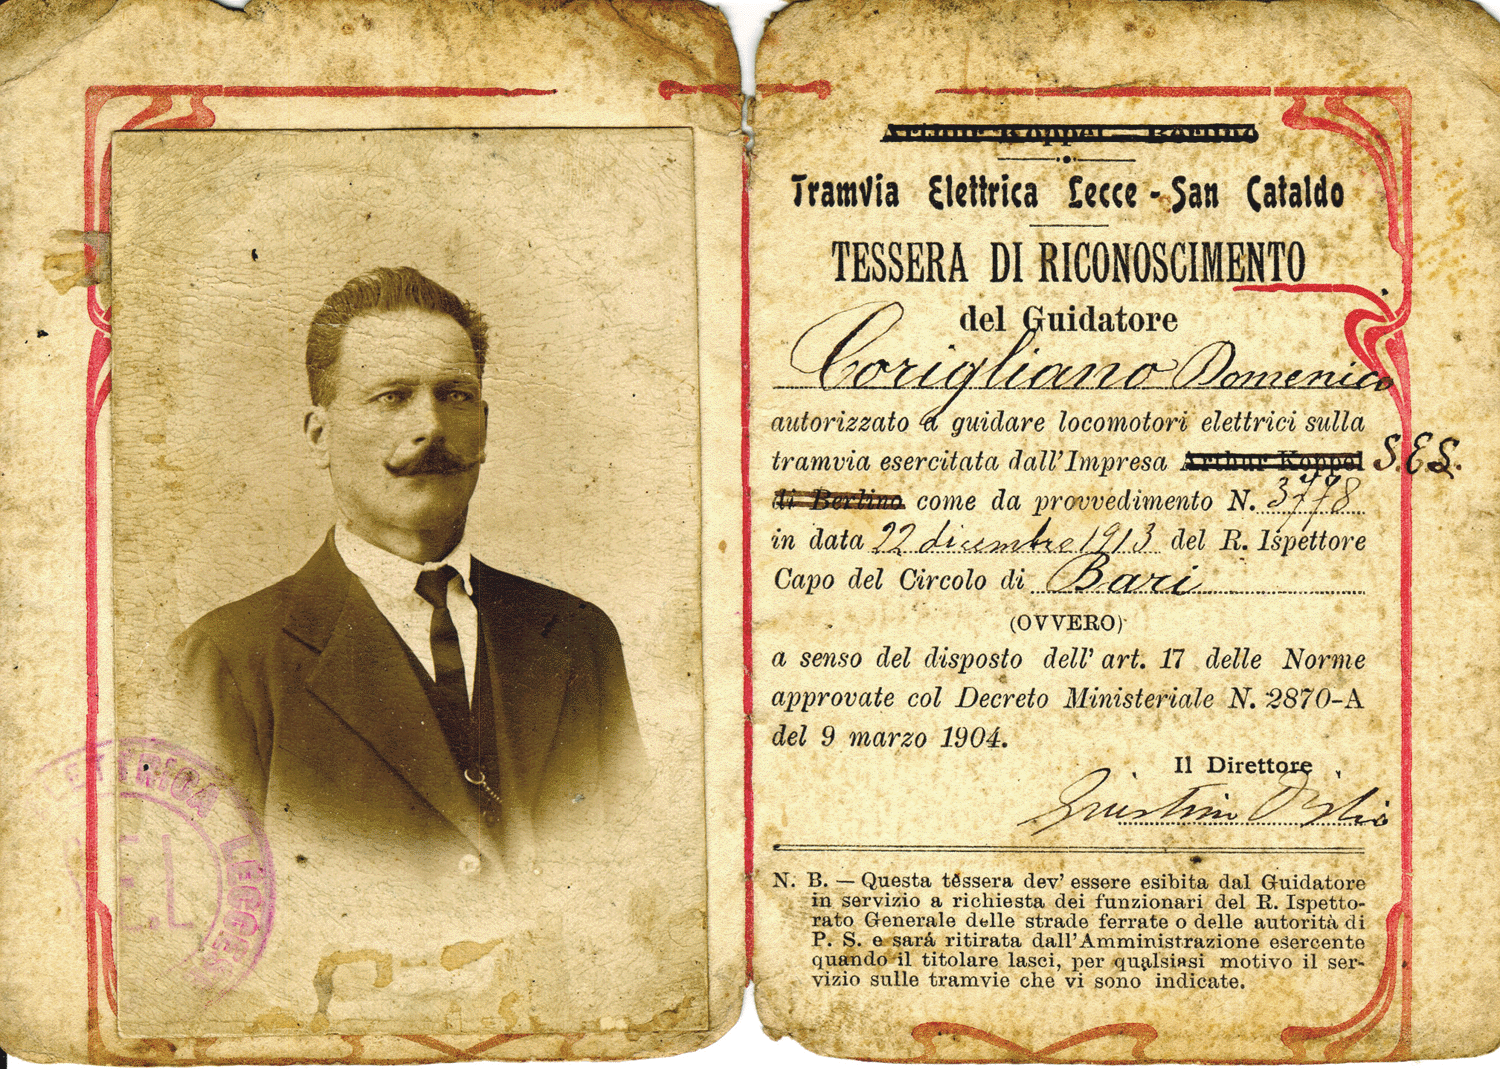 ELETTRICA LECCE
F.L
Arthur Koppel - Berlino
Tramvia Elettrica Lecce - San Cataldo
TESSERA DI RICONOSCIMENTO
del Guidatore
Corigliano Domenico
autorizzato a guidare locomotori elettrici sulla
tramvia esercitata dall'Impresa Arthur Koppel S.E.S.
di Berlino come da provvedimento N. 3778
in data 22 dicembre 1913 del R. Ispettore
Capo del Circolo di Bari
(OVVERO)
a senso del disposto dell' art. 17 delle Norme
approvate col Decreto Ministeriale N. 2870-A
del 9 marzo 1904.
Il Direttore
N. B. — Questa tessera dev' essere esibita dal Guidatore
in servizio a richiesta dei funzionari del R. Ispetto-
rato Generale delle strade ferrate o delle autorità di
P. S. e sará ritirata dall'Amministrazione esercente
quando il titolare lasci, per qualsiasi motivo il ser-
vizio sulle tramvie che vi sono indicate.